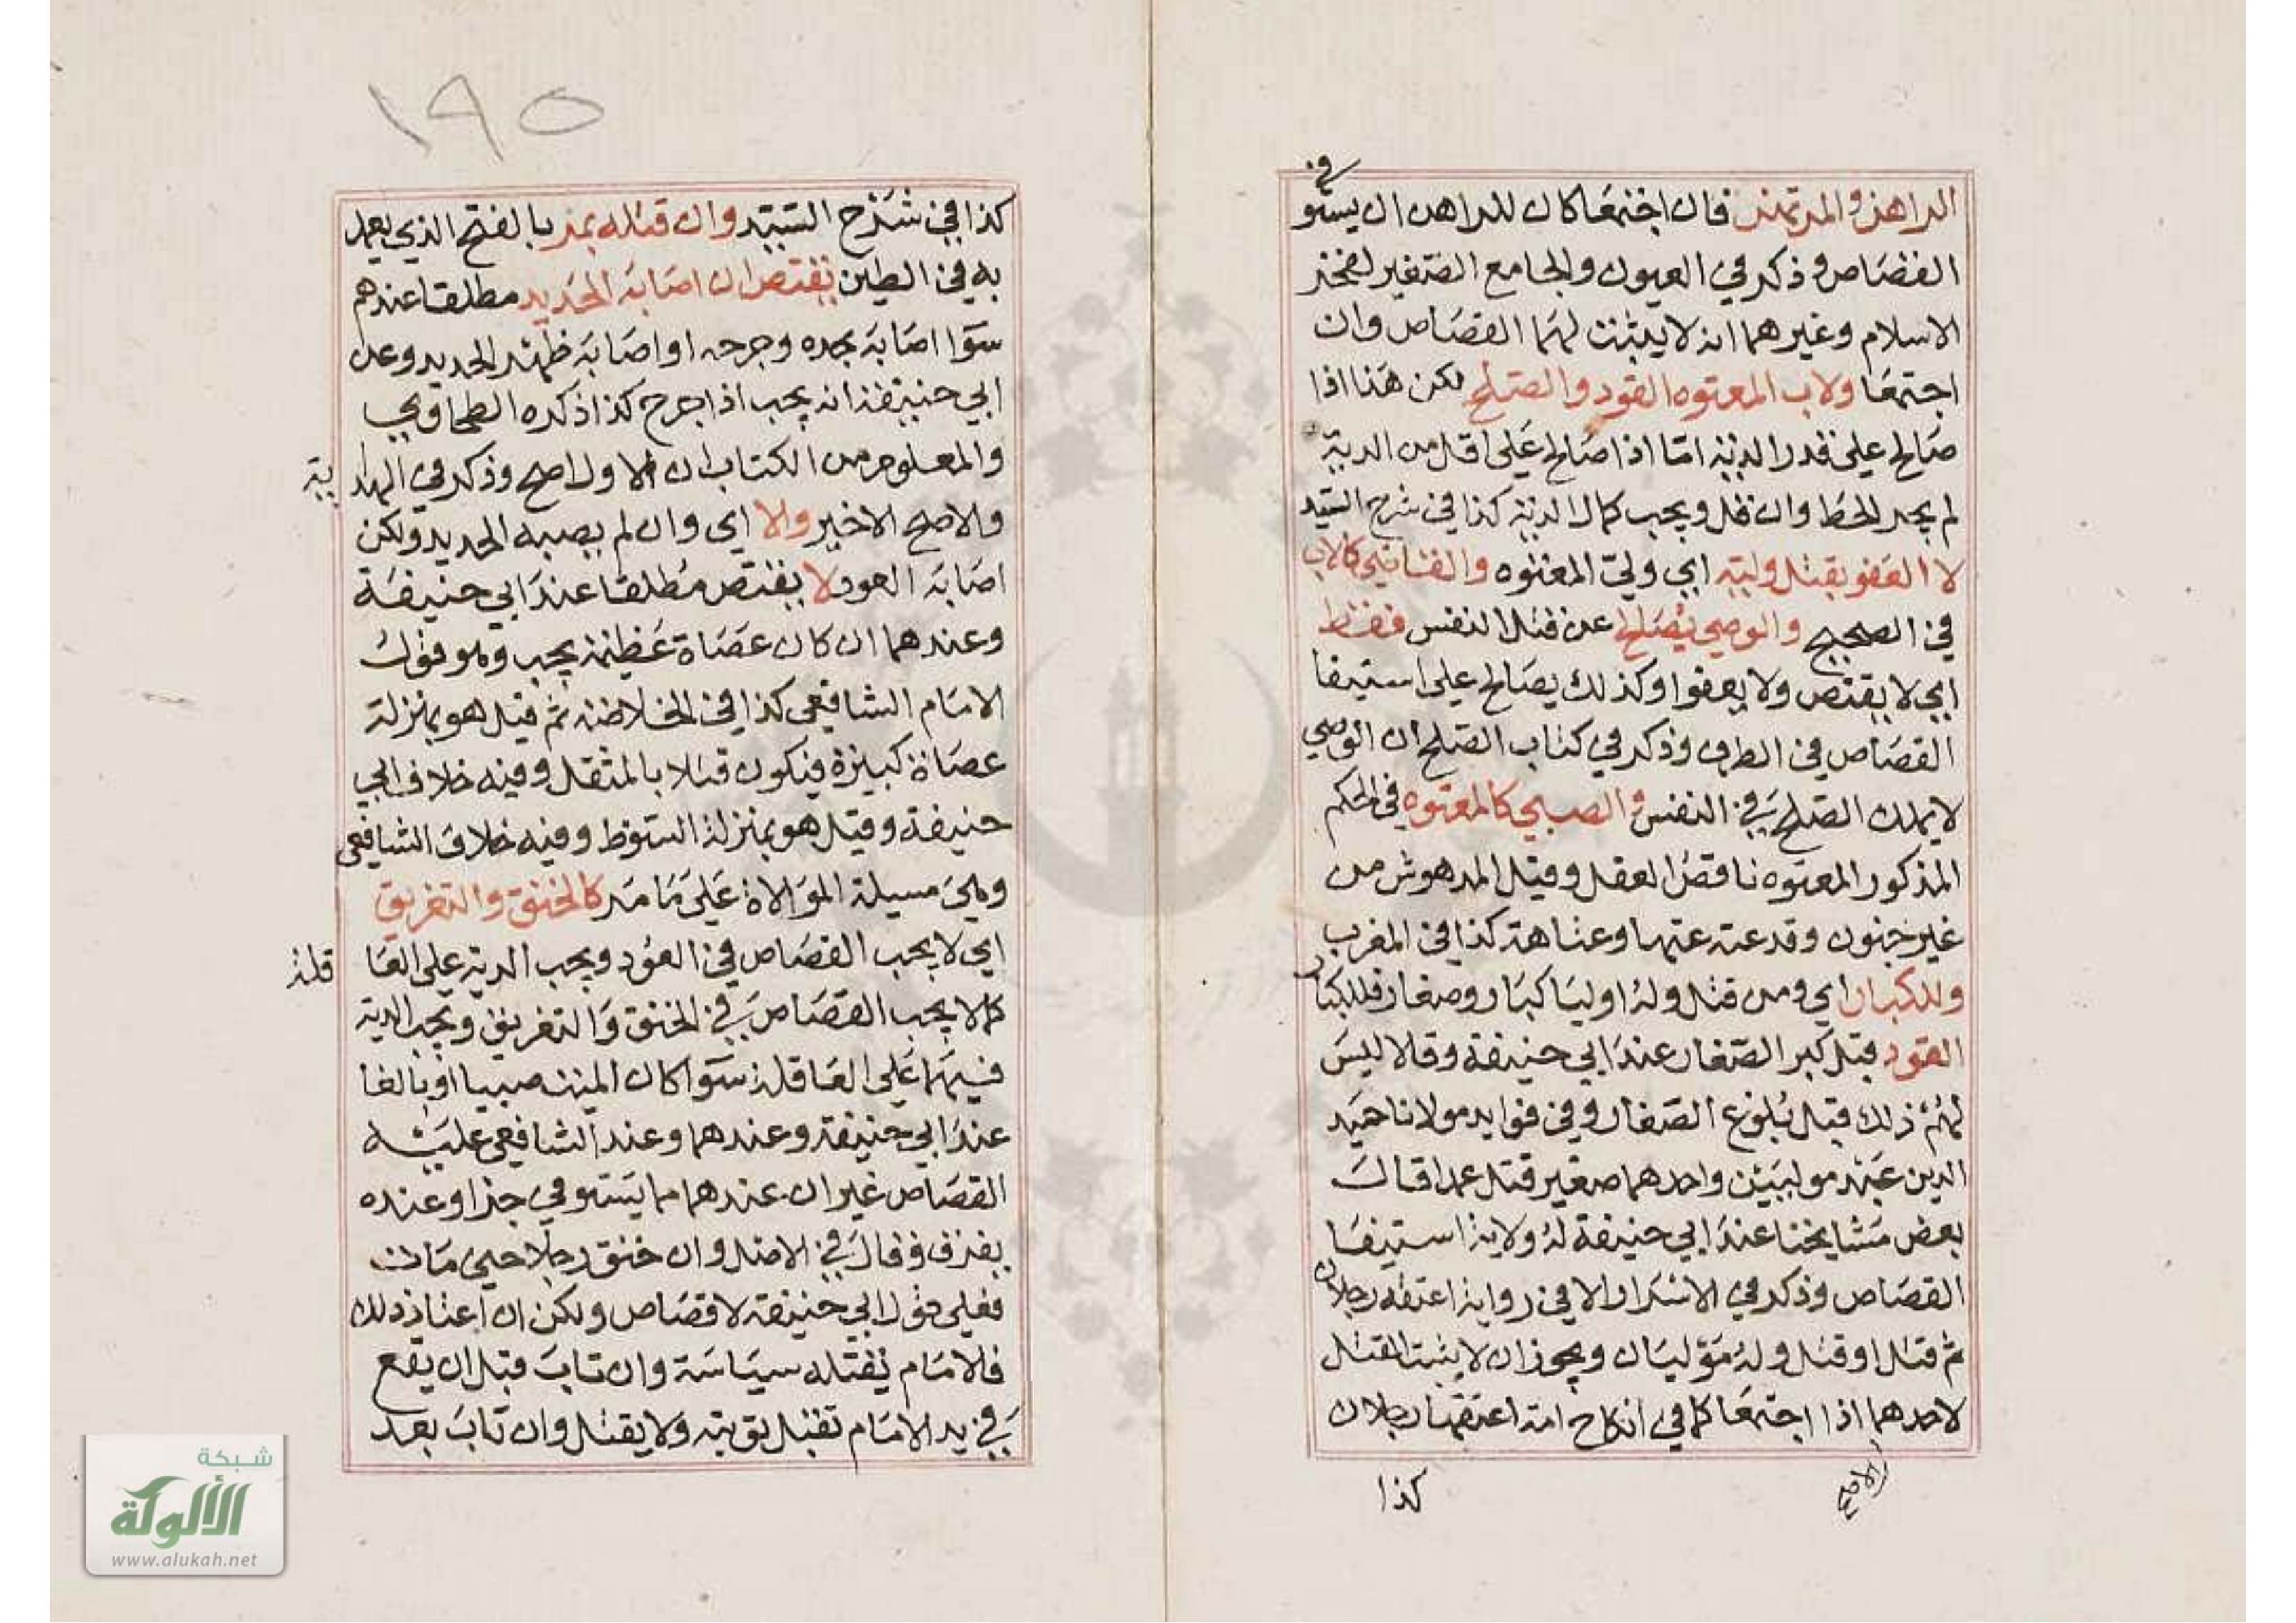 الراهن والمرتهن فان اجتمعا كان للراهن ان يستوفى
القصاص وذكر في العيون والجامع الصغير لفخر
الاسلام وغيرهما انه لا يثبت لهما القصاص وان
اجتمعا ولاب المعتوه القود والصلح لكن هذا اذا
صالح على قدر الدية اما اذا صالح على اقل من الدية
لم يجز الحط وان قل ويجب كمال الدية كذا في شرح السيد
لا العفو بقتل وليه اي ولي المعتوه والقاضي كالاب
في الصحيح والوصي يصالح عن قتل النفس فقط
اي لا يقتص ولا يعفوا وكذلك يصالح على استيفا
القصاص في الطرف وذكر في كتاب الصلح ان الوصي
لا يملك الصلح في النفس والصبي كالمعتوه في الحكم
المذكور المعتوه ناقص العقل وقيل المدهوش من
غير جنون وقد عته عتها وعتاهة كذا في المغرب
وللكبار اي ومن قتل وله اوليا كبار وصغار فللكبار
القود قبل كبر الصغار عند ابي حنيفة وقالا ليس
لهم ذلك قبل بلوغ الصغار وفي فوايد مولانا حميد
الدين عبد موليين واحدهما صغير قتل عمدا قال
بعض مشايخنا عند ابي حنيفة له ولاية استيفا
القصاص وذكر في الاسرار الا في رواية اعتقه رجلان
ثم قتل او قتل وله موليان ويجوز ان لا يثبت القتل
لاحدهما اذا اجتمعا كما في انكاح امة اعتقها رجلان
الاصح
كذا
١٩٥
كذا في شرح السيد وان قتله بمر بالفتح الذي يعمل
به في الطين يقتص ان اصابه الحديد مطلقا عندهم
سوا اصابه بحده وجرحه او اصابه ظهر الحديد وعن
ابي حنيفة انه يجب اذا جرح كذا ذكره الطحاوي
والمعلوم من الكتاب ان الاول اصح وذكر في الهداية
والاصح الاخير والا اي وان لم يصبه الحديد ولكن
اصابه العود لا يقتص مطلقا عند ابي حنيفة
وعندهما ان كان عصاة عظيمة يجب وهو قول
الامام الشافعي كذا في الخلاصة ثم قيل هو بمنزلة
عصاة كبيرة فيكون قتلا بالمثقل وفيه خلاف ابي
حنيفة وقيل هو بمنزلة السوط وفيه خلاف الشافعي
وهي مسيلة الموالاة على ما مر كالخنق والتغريق
اي لا يجب القصاص في العود ويجب الدية على العاقلة
كما لا يجب القصاص في الخنق والتغريق ويجب الدية
فيهما على العاقلة سوا كان الميت صبيا او بالغا
عند ابي حنيفة وعندهما وعند الشافعي عليه
القصاص غير ان عندهما يستوفي جزا وعنده
يغرق وقال في الاصل وان خنق رجلا حتى مات
فعلى قول ابي حنيفة لا قصاص ولكن ان اعتاد ذلك
فللامام يقتله سياسة وان تاب قبل ان يقع
في يد الامام تقبل توبته ولا يقتل وان تاب بعد
شبكة
الألوكة
www.alukah.net